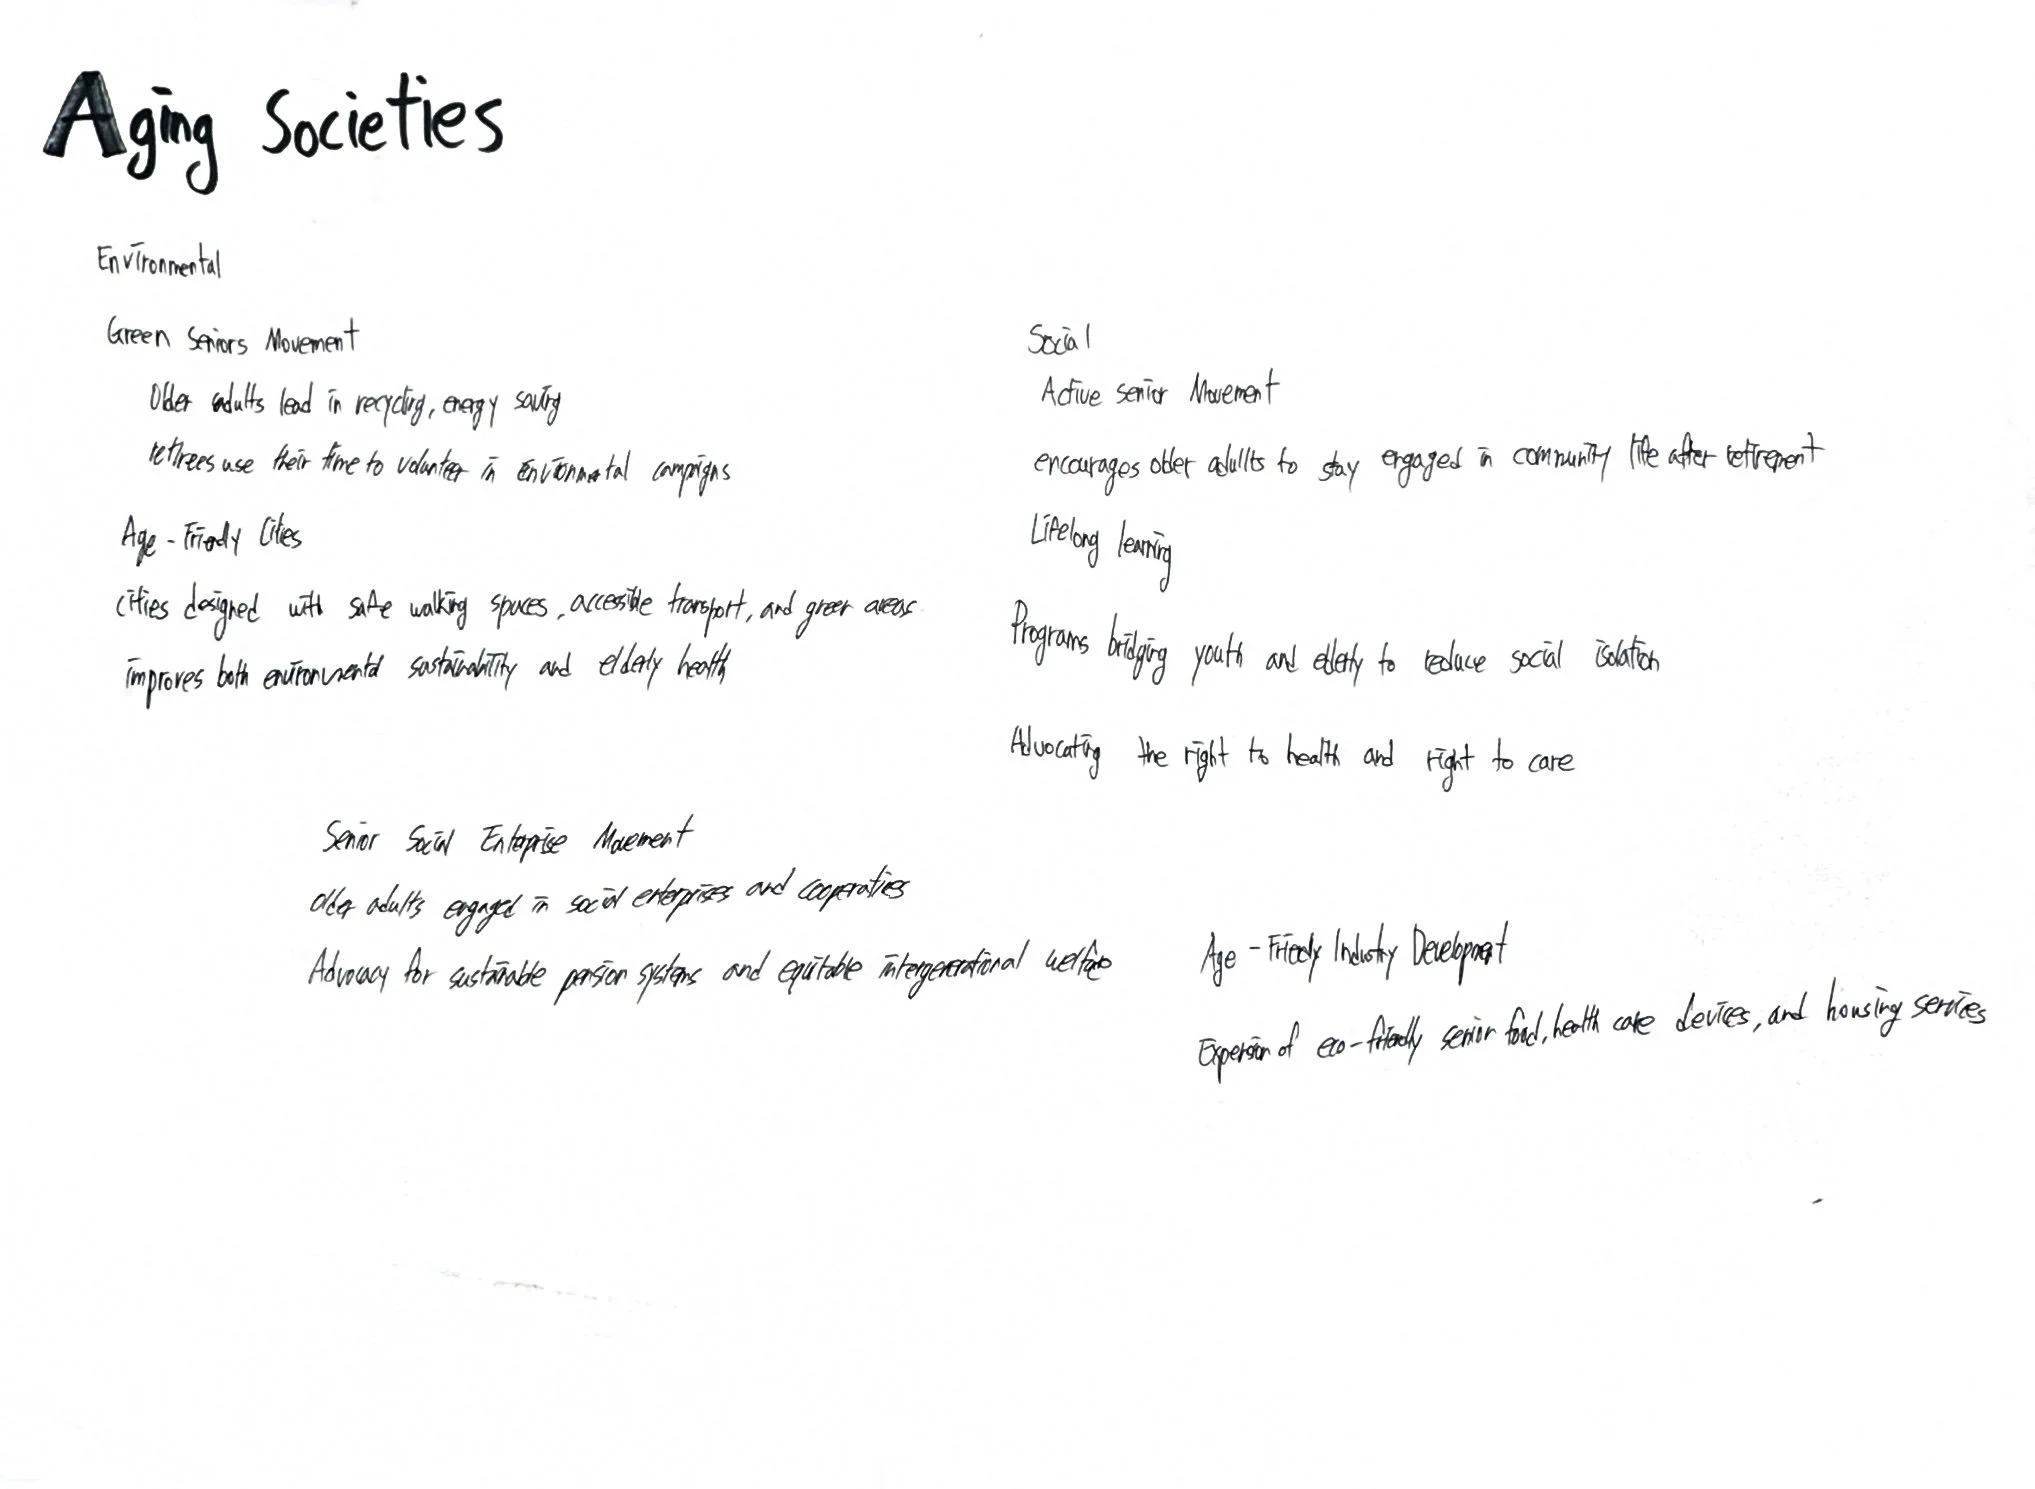 Aging Societies
Environmental
Green Seniors Movement
Older adults lead in recycling, energy saving
retirees use their time to volunteer in environmental campaigns
Age-Friendly Cities
cities designed with safe walking spaces, accessible transport, and green areas
improves both environmental sustainability and elderly health
Social
Active senior Movement
encourages older adullts to stay engaged in community life after retirement
Lifelong learning
Programs bridging youth and elderly to reduce social isolation
Advocating the right to health and right to care
Senior Social Enterprise Movement
older adults engaged in social enterprises and cooperatives
Advocacy for sustainable pension systems and equitable intergenerational welfare
Age-Friendly Industry Development
Expansion of eco-friendly senior food, health care devices, and housing services